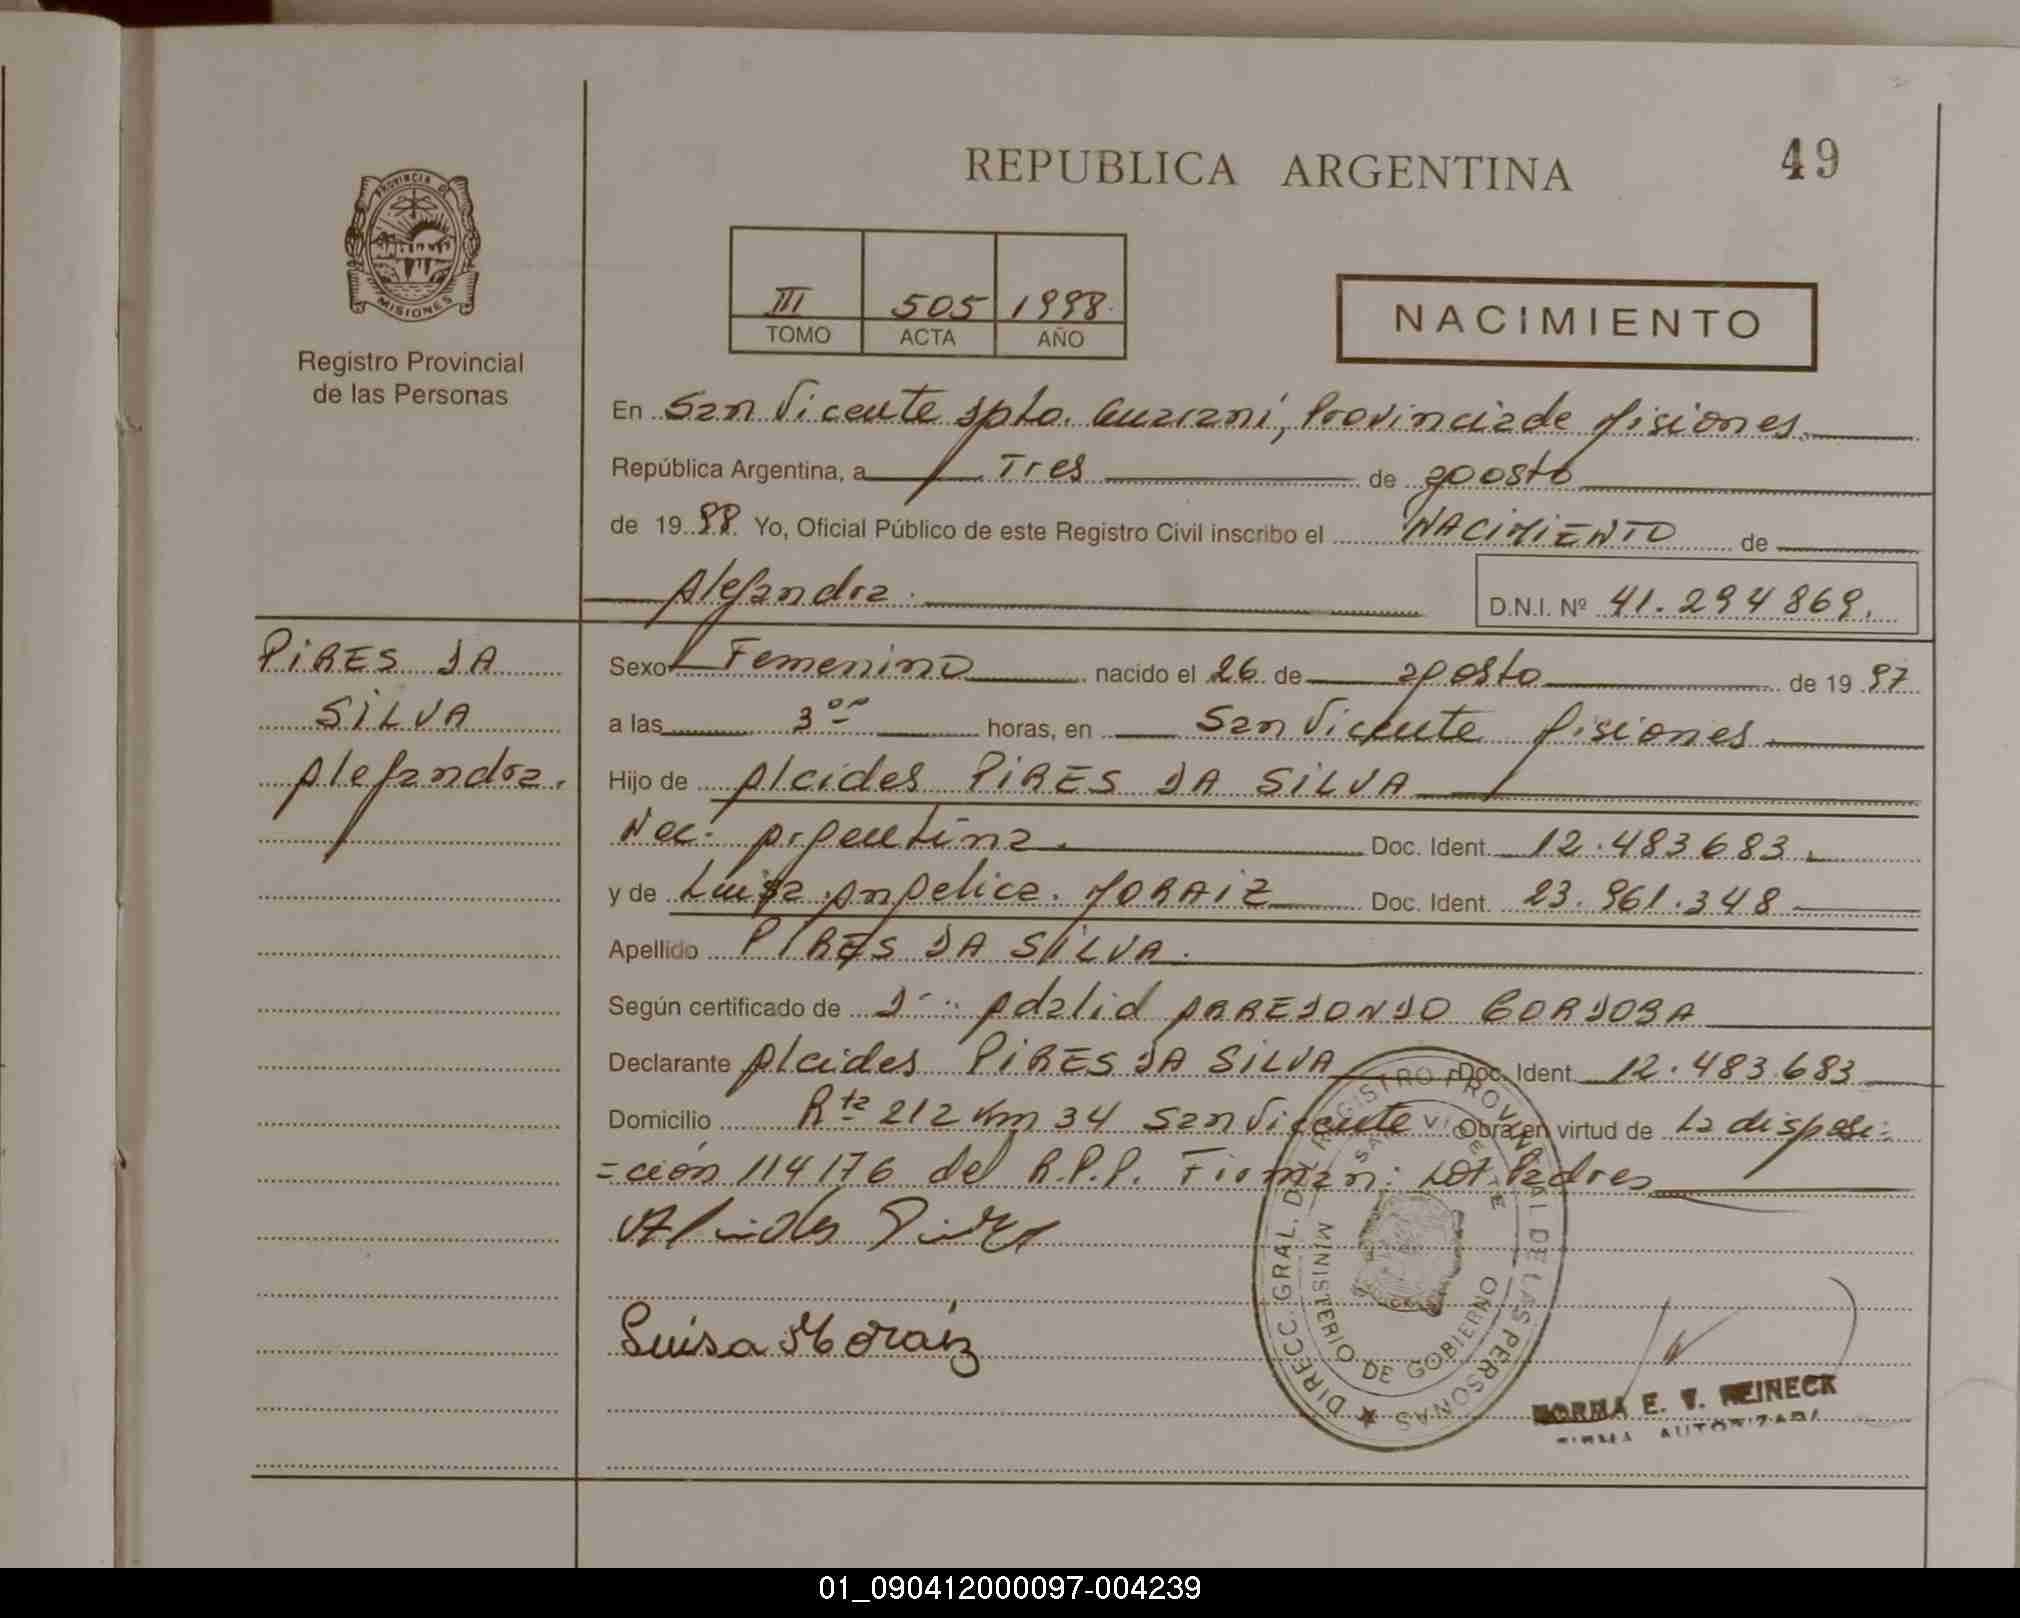 REPUBLICA ARGENTINA
49
PROVINCIA DE
MISIONES
Registro Provincial
de las Personas
III 505 1998.
TOMO ACTA AÑO
NACIMIENTO
En San Vicente Dpto. Guaraní, Provincia de Misiones.
República Argentina, a Tres de agosto
de 1998. Yo, Oficial Público de este Registro Civil inscribo el NACIMIENTO de
Alejandra.
D.N.I. Nº 41.294869.
PIRES DA
SILVA
Alejandra.
Sexo Femenino nacido el 26 de agosto de 1997
a las 3 00 horas, en San Vicente Misiones
Hijo de Alcides PIRES DA SILVA
Nac. Argentina. Doc. Ident. 12.483683.
y de Luisa Angelica. MORAIZ Doc. Ident. 23.961.348
Apellido PIRES DA SILVA.
Según certificado de Dr. Adalid ARREDONDO CORDOBA
Declarante Alcides PIRES DA SILVA Doc. Ident. 12.483.683
Domicilio Rta 212 Km 34 San Vicente Obra en virtud de la disposi=
=ción 114176 del R.P.P. Firman: Los Padres
Luisa Moraiz
DIRECC. GRAL. DEL REGISTRO PROVINCIAL DE LAS PERSONAS
SAN VICENTE
MINISTERIO DE GOBIERNO
NORMA E. V. REINECK
FIRMA AUTORIZADA
01_090412000097-004239